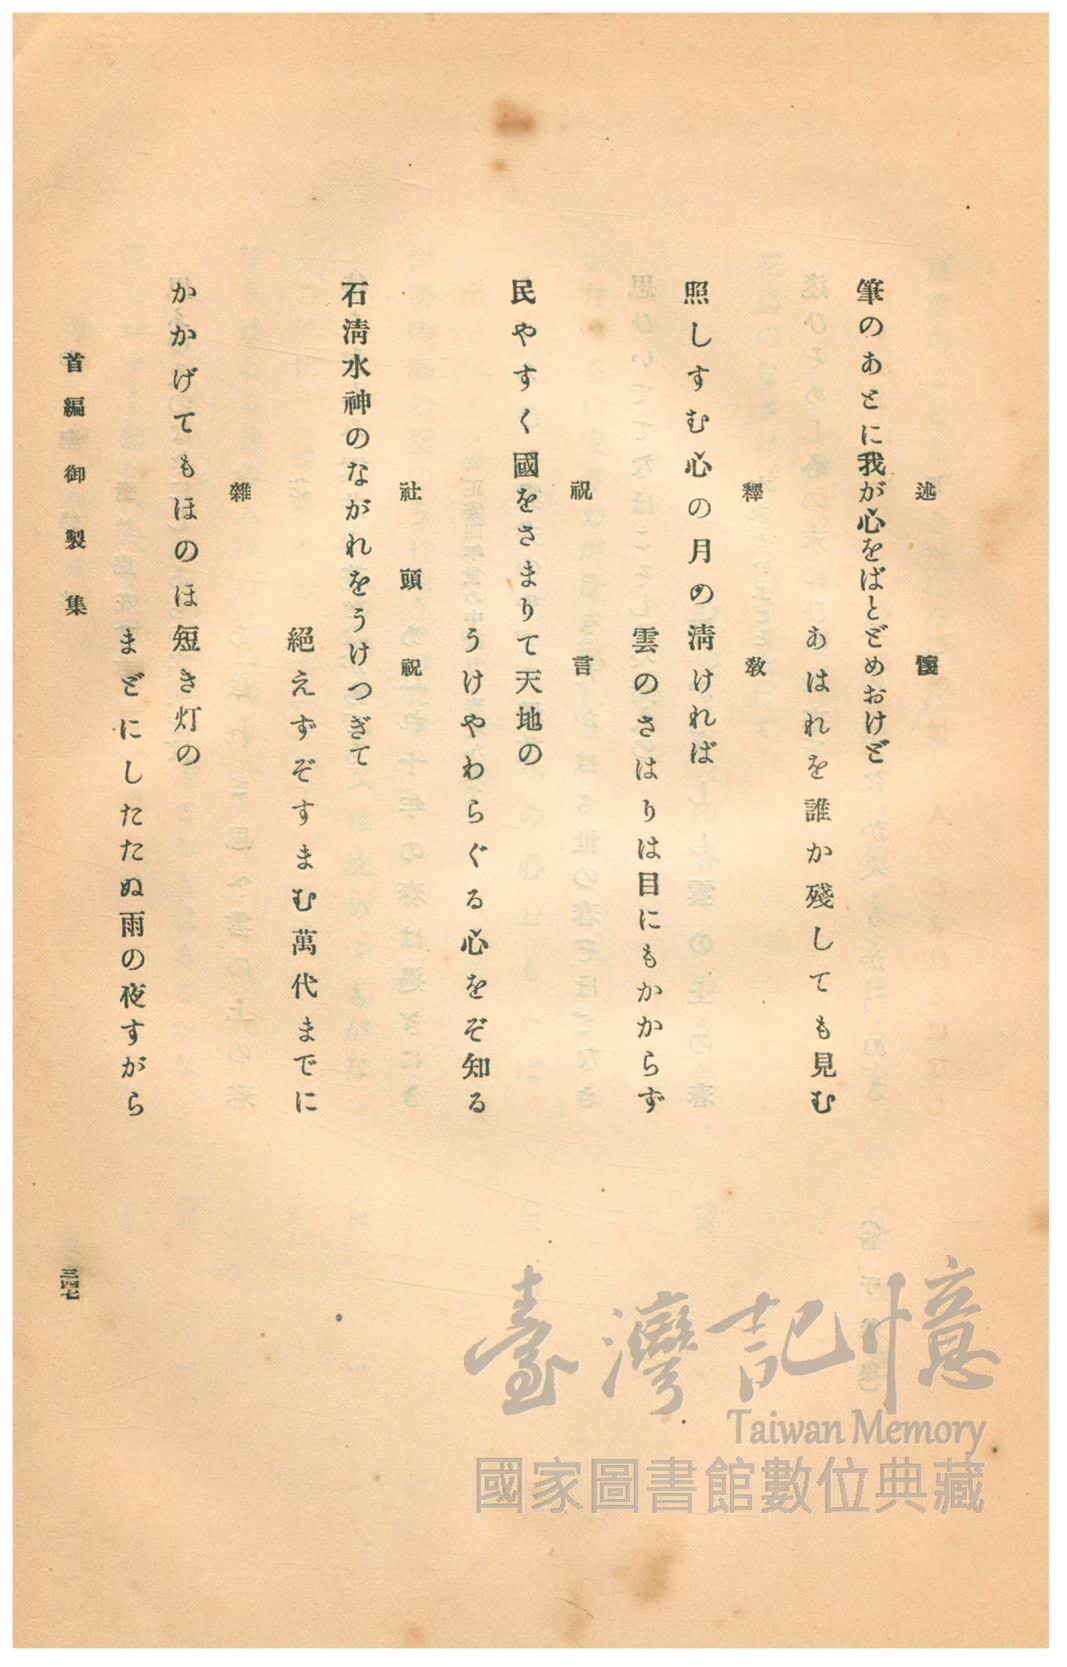 述懷
筆のあとに我が心をばとどめおけど
あはれを誰か殘しても見む
釋敎
照しすむ心の月の淸ければ
雲のさはりは目にもかからず
祝言
民やすく國をさまりて天地の
うけやわらぐる心をぞ知る
社頭祝
石淸水神のながれをうけつぎて
絕えずぞすまむ萬代までに
雜
かかげてもほのほ短き灯の
まどにしたたぬ雨の夜すがら
首編 御製集
三四七
臺灣記憶
Taiwan Memory
國家圖書館數位典藏